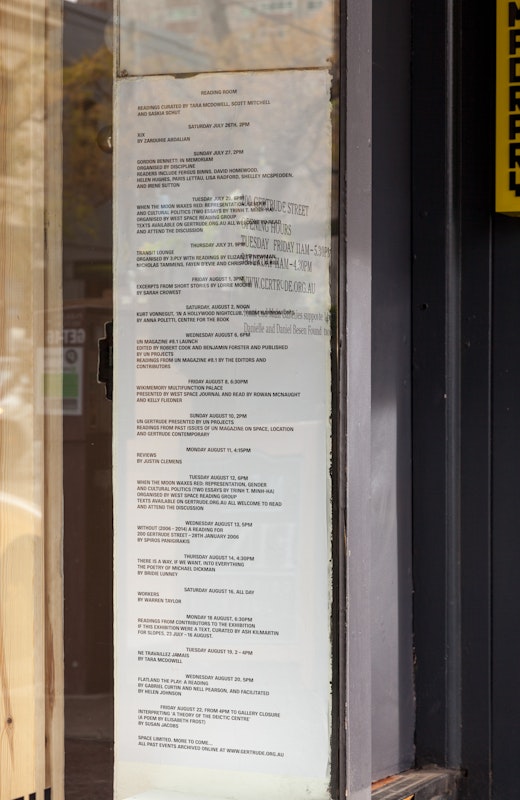 READING ROOM
READINGS CURATED BY TARA MCDOWELL, SCOTT MITCHELL
AND SASKIA SCHUT
SATURDAY JULY 26TH, 2PM
XIX
BY ZANOUHIE ABDALIAN
SUNDAY JULY 27, 2PM
GORDON BENNETT: IN MEMORIAM
ORGANISED BY DISCIPLINE
READERS INCLUDE FERGUS BINNS, DAVID HOMEWOOD,
HELEN HUGHES, PARIS LETTAU, LISA RADFORD, SHELLEY MCSPEDDEN,
AND IRENE SUTTON
TUESDAY JULY 29, 6PM
WHEN THE MOON WAXES RED: REPRESENTATION, GENDER
AND CULTURAL POLITICS (TWO ESSAYS BY TRINH T. MINH-HA)
ORGANISED BY WEST SPACE READING GROUP
TEXTS AVAILABLE ON GERTRUDE.ORG.AU ALL WELCOME TO READ
AND ATTEND THE DISCUSSION
THURSDAY JULY 31,
TRANSIT LOUNGE
ORGANISED BY 3-PLY WITH READINGS BY ELIZABETH NEWMAN,
NICHOLAS TAMMENS, FAYEN D'EVIE AND
FRIDAY AUGUST 1, 3PM
EXCERPTS FROM SHORT STORIES BY LORRIE MOORE
BY SARAH CROWEST
SATURDAY, AUGUST 2, NOON
KURT VONNEGUT, 'IN A HOLLYWOOD NIGHTCLUB,'
BY ANNA POLETTI, CENTRE FOR THE BOOK
WEDNESDAY AUGUST 6, 6PM
UN MAGAZINE #8.1 LAUNCH
EDITED BY ROBERT COOK AND BENJAMIN FORSTER AND PUBLISHED
BY UN PROJECTS
READINGS FROM UN MAGAZINE #8.1 BY THE EDITORS AND
CONTRIBUTORS
FRIDAY AUGUST 8, 6:30PM
WIKIMEMORY MULTIFUNCTION PALACE
PRESENTED BY WEST SPACE JOURNAL AND READ BY ROWAN MCNAUGHT
AND KELLY FLIEDNER
SUNDAY AUGUST 10, 2PM
UN GERTRUDE PRESENTED BY UN PROJECTS
READINGS FROM PAST ISSUES OF UN MAGAZINE ON SPACE, LOCATION
AND GERTRUDE CONTEMPORARY
MONDAY AUGUST 11, 4:15PM
REVIEWS
BY JUSTIN CLEMENS
TUESDAY AUGUST 12, 6PM
WHEN THE MOON WAXES RED: REPRESENTATION, GENDER
AND CULTURAL POLITICS (TWO ESSAYS BY TRINH T. MINH-HA)
ORGANISED BY WEST SPACE READING GROUP
TEXTS AVAILABLE ON GERTRUDE.ORG.AU ALL WELCOME TO READ
AND ATTEND THE DISCUSSION
WEDNESDAY AUGUST 13, 5PM
WITHOUT (2006 - 2014) A READING FOR
200 GERTRUDE STREET - 28TH JANUARY 2006
BY SPIROS PANIGIRAKIS
THURSDAY AUGUST 14, 4:30PM
THERE IS A WAY, IF WE WANT, INTO EVERYTHING
THE POETRY OF MICHAEL DICKMAN
BY BRIDIE LUNNEY
SATURDAY AUGUST 16, ALL DAY
WORKERS
BY WARREN TAYLOR
MONDAY 18 AUGUST, 6:30PM
READINGS FROM CONTRIBUTORS TO THE EXHIBITION
IF THIS EXHIBITION WERE A TEXT, CURATED BY ASH KILMARTIN
FOR SLOPES, 23 JULY - 16 AUGUST.
TUESDAY AUGUST 19, 2 - 4PM
NE TRAVAILLEZ JAMAIS
BY TARA MCDOWELL
WEDNESDAY AUGUST 20, 5PM
FLATLAND THE PLAY: A READING
BY GABRIEL CURTIN AND NELL PEARSON, AND FACILITATED
BY HELEN JOHNSON
FRIDAY AUGUST 22, FROM 4PM TO GALLERY CLOSURE
INTERPRETING 'A THEORY OF THE DEICTIC CENTRE'
(A POEM BY ELISABETH FROST)
BY SUSAN JACOBS
SPACE LIMITED, MORE TO COME...
ALL PAST EVENTS ARCHIVED ONLINE AT WWW.GERTRUDE.ORG.AU
GERTRUDE STREET
OPENING HOURS
TUESDAY FRIDAY 11AM-5.30PM
11AM-4.30PM
WWW.GERTRUDE.ORG.AU
Danielle and Daniel Besen Found